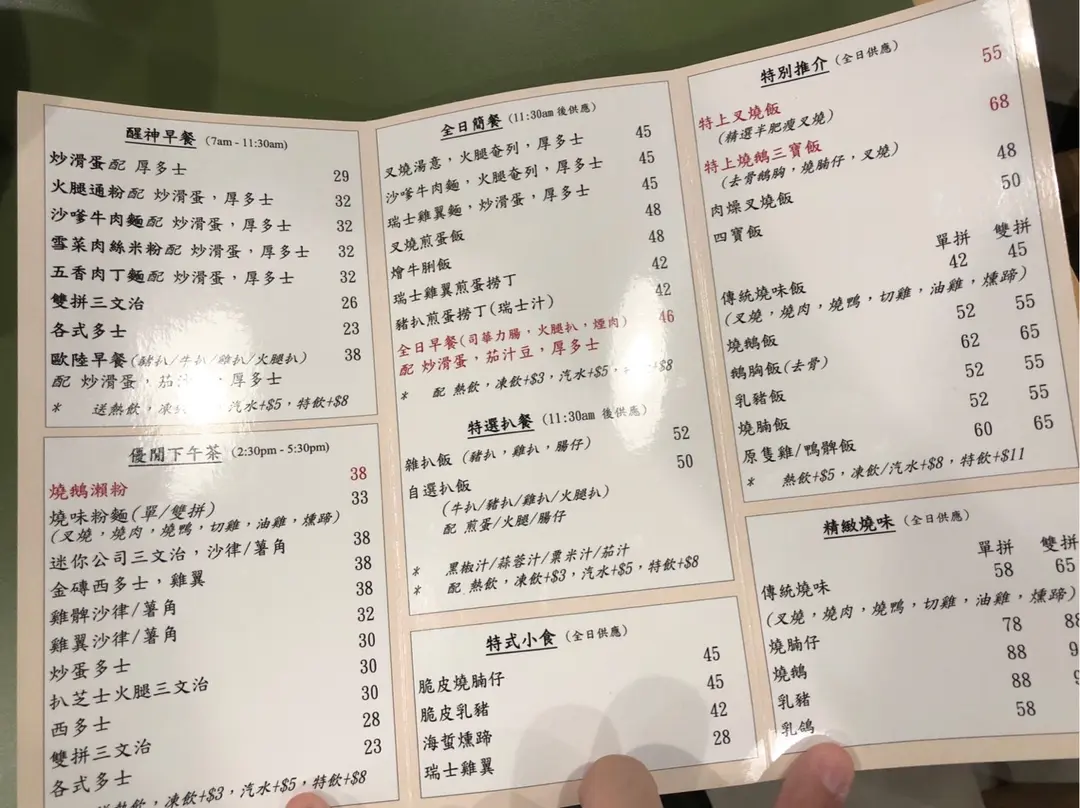 醒神早餐 (7am - 11:30am)
炒滑蛋配 厚多士 29
火腿通粉配 炒滑蛋，厚多士 32
沙嗲牛肉麵配 炒滑蛋，厚多士 32
雪菜肉絲米粉配 炒滑蛋，厚多士 32
五香肉丁麵配 炒滑蛋，厚多士 32
雙拼三文治 26
各式多士 23
歐陸早餐(豬扒/牛扒/雞扒/火腿扒) 38
配 炒滑蛋，茄 厚多士
* 送熱飲，凍 汽水+$5，特飲+$8
優閒下午茶 (2:30pm - 5:30pm)
燒鵝瀨粉 38
燒味粉麵(單/雙拼) 33
(叉燒，燒肉，燒鴨，切雞，油雞，燻蹄)
迷你公司三文治，沙律/薯角 38
金磚西多士，雞翼 38
雞髀沙律/薯角 38
雞翼沙律/薯角 32
炒蛋多士 30
扒芝士火腿三文治 30
西多士 30
雙拼三文治 28
各式多士 23
送熱飲，凍飲+$3，汽水+$5，特飲+$8
全日簡餐 (11:30am 後供應)
叉燒湯意，火腿奄列，厚多士 45
沙嗲牛肉麵，火腿奄列，厚多士 45
瑞士雞翼麵，炒滑蛋，厚多士 45
叉燒煎蛋飯 48
燴牛脷飯 48
瑞士雞翼煎蛋撈丁 42
豬扒煎蛋撈丁(瑞士汁) 42
全日早餐(司華力腸，火腿扒，煙肉) 46
配 炒滑蛋，茄汁豆，厚多士
* 配 熱飲，凍飲+$3，汽水+$5， +$8
特選扒餐 (11:30am 後供應)
雜扒飯 (豬扒，雞扒，腸仔) 52
自選扒飯 50
(牛扒/豬扒/雞扒/火腿扒)
配 煎蛋/火腿/腸仔
* 黑椒汁/蒜蓉汁/粟米汁/茄汁
* 配 熱飲，凍飲+$3，汽水+$5，特飲+$8
特式小食 (全日供應)
脆皮燒腩仔 45
脆皮乳豬 45
海蜇燻蹄 42
瑞士雞翼 28
特別推介 (全日供應)
特上叉燒飯 55
(精選半肥瘦叉燒)
特上燒鵝三寶飯 68
(去骨鵝胸，燒腩仔，叉燒)
肉燥叉燒飯 48
四寶飯 50
單拼 雙拼
傳統燒味飯 42 45
(叉燒，燒肉，燒鴨，切雞，油雞，燻蹄)
燒鵝飯 52 55
鵝胸飯(去骨) 62 65
乳豬飯 52 55
燒腩飯 52 55
原隻雞/鴨髀飯 60 65
* 熱飲+$5，凍飲/汽水+$8，特飲+$11
精緻燒味 (全日供應)
單拼 雙拼
傳統燒味 58 65
(叉燒，燒肉，燒鴨，切雞，油雞，燻蹄)
燒腩仔 78 88
燒鵝 88
乳豬 88
乳鴿 58